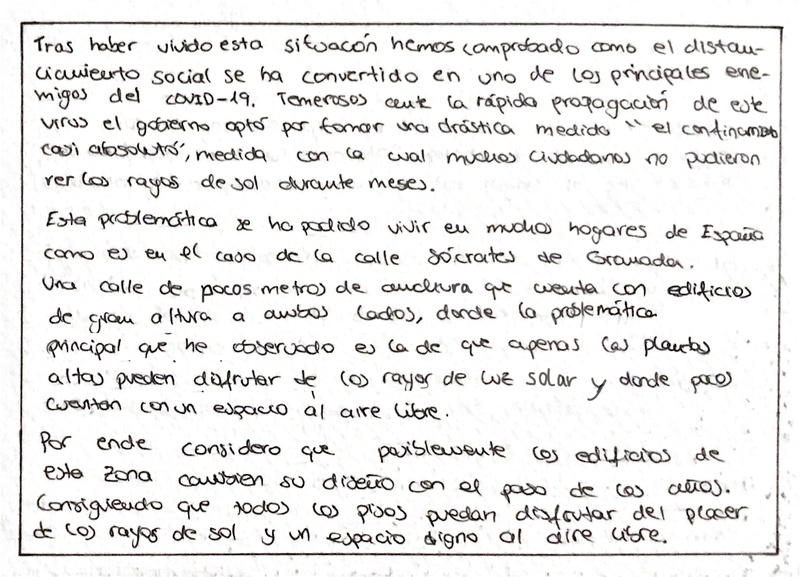 Tras haber vivido esta situacón hemos comprobado como el distan-
ciamiento social se ha convertido en uno de los principales ene-
migos del COVID-19. Temerosos ante la rápida propagación de este
virus el gobierno optó por tomar una drástica medida "el confinamiento
casi absoluto", medida con la cual muchos ciudadanos no pudieron
ver los rayos de sol durante meses.
Esta problemática se ha podido vivir en muchos hogares de España
como es en el caso de la calle Sócrates de Granada.
Una calle de pocos metros de anchura que cuenta con edificios
de gran altura a ambos lados, donde la problemática
principal que he observado es la de que apenas las plantas
altas pueden disfrutar de los rayos de luz solar y donde pocos
cuentan con un espacio al aire libre.
Por ende considero que posiblemente los edificios de
esta zona cambien su diseño con el paso de los años.
Consiguendo que todos los pisos puedan disfrutar del placer
de los rayos de sol y un espacio digno al aire libre.